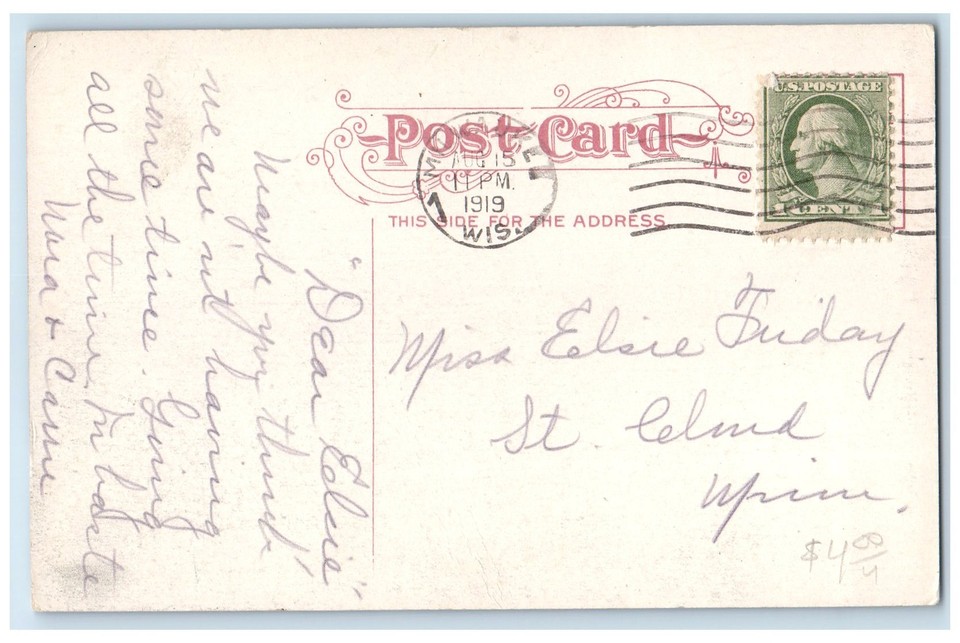 Post Card
THIS SIDE FOR THE ADDRESS.
AUG 15
11 PM.
1919
WIS.
1
U.S. POSTAGE
1 CENT 1
"Dear Elsie",
Maybe you think
we are not having
some time. Going
all the time. In haste
Nora + Carrie
Miss Elsie Friday
St. Cloud
Minn.
$4.00
4